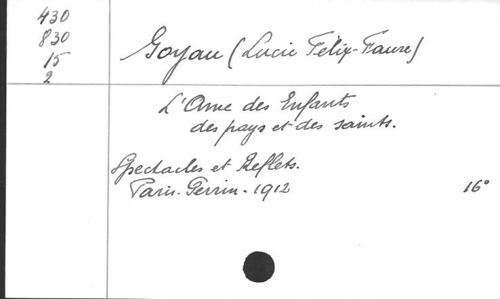 430
830
15
2
Goyau (Lucie Félix-Faure)
L'Ame des Enfants
des pays et des saints.
Spectacles et Reflets.
Paris. Perrin - 1912
16°